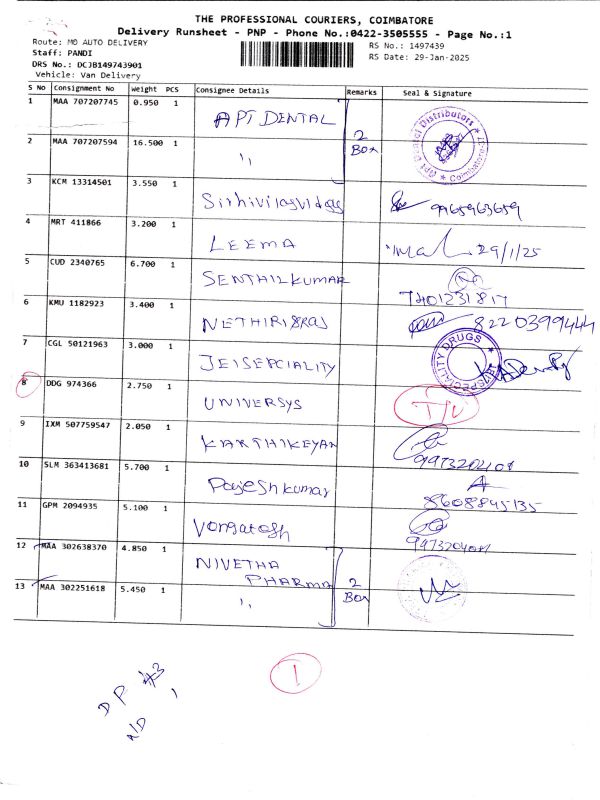 THE PROFESSIONAL COURIERS, COIMBATORE
Delivery Runsheet - PNP - Phone No.:0422-3505555 - Page No.:1
Route: MO AUTO DELIVERY
RS No.: 1497439
Staff: PANDI
RS Date: 29-Jan-2025
DRS No.: DCJB149743901
Vehicle: Van Delivery
S No Consignment No Weight PCS Consignee Details Remarks Seal & Signature
1 MAA 707207745 0.950 1 APT DENTAL
2 MAA 707207594 16.500 1 ,, 2 Box
3 KCM 13314501 3.550 1 9965963659
4 MRT 411866 3.200 1 LEEMA 29/1/25
5 CUD 2340765 6.700 1 SENTHILKUMAR 7401231817
6 KMU 1182923 3.400 1 8220399444
7 CGL 50121963 3.000 1 JEISEPCIALITY
8 DDG 974366 2.750 1 UNIVERSYS
9 IXM 507759547 2.050 1 KARTHIKEYAN
10 SLM 363413681 5.700 1 Rajeshkumar 8608845135
11 GPM 2094935 5.100 1
12 MAA 302638370 4.850 1 NIVETHA PHARMA
13 MAA 302251618 5.450 1 ,, 2 Box
DP
1